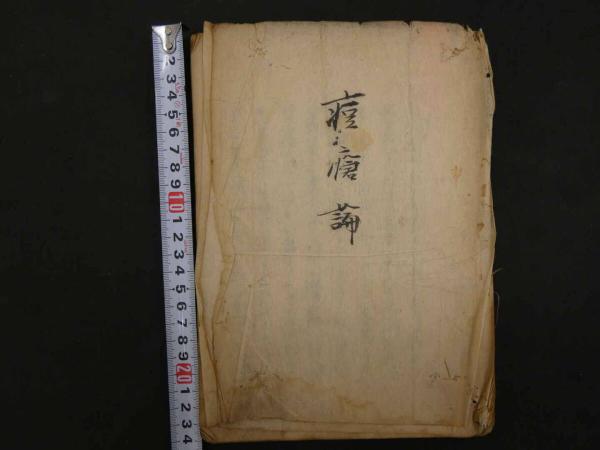 痘瘡論
2
3
4
5
6
7
8
9
10
1
2
3
4
5
6
7
8
9
20
1
2
3
4